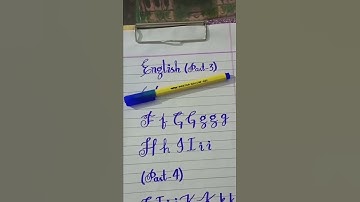 English (Part-3)
F f G G g g g
H h I I i i
(Part-4)